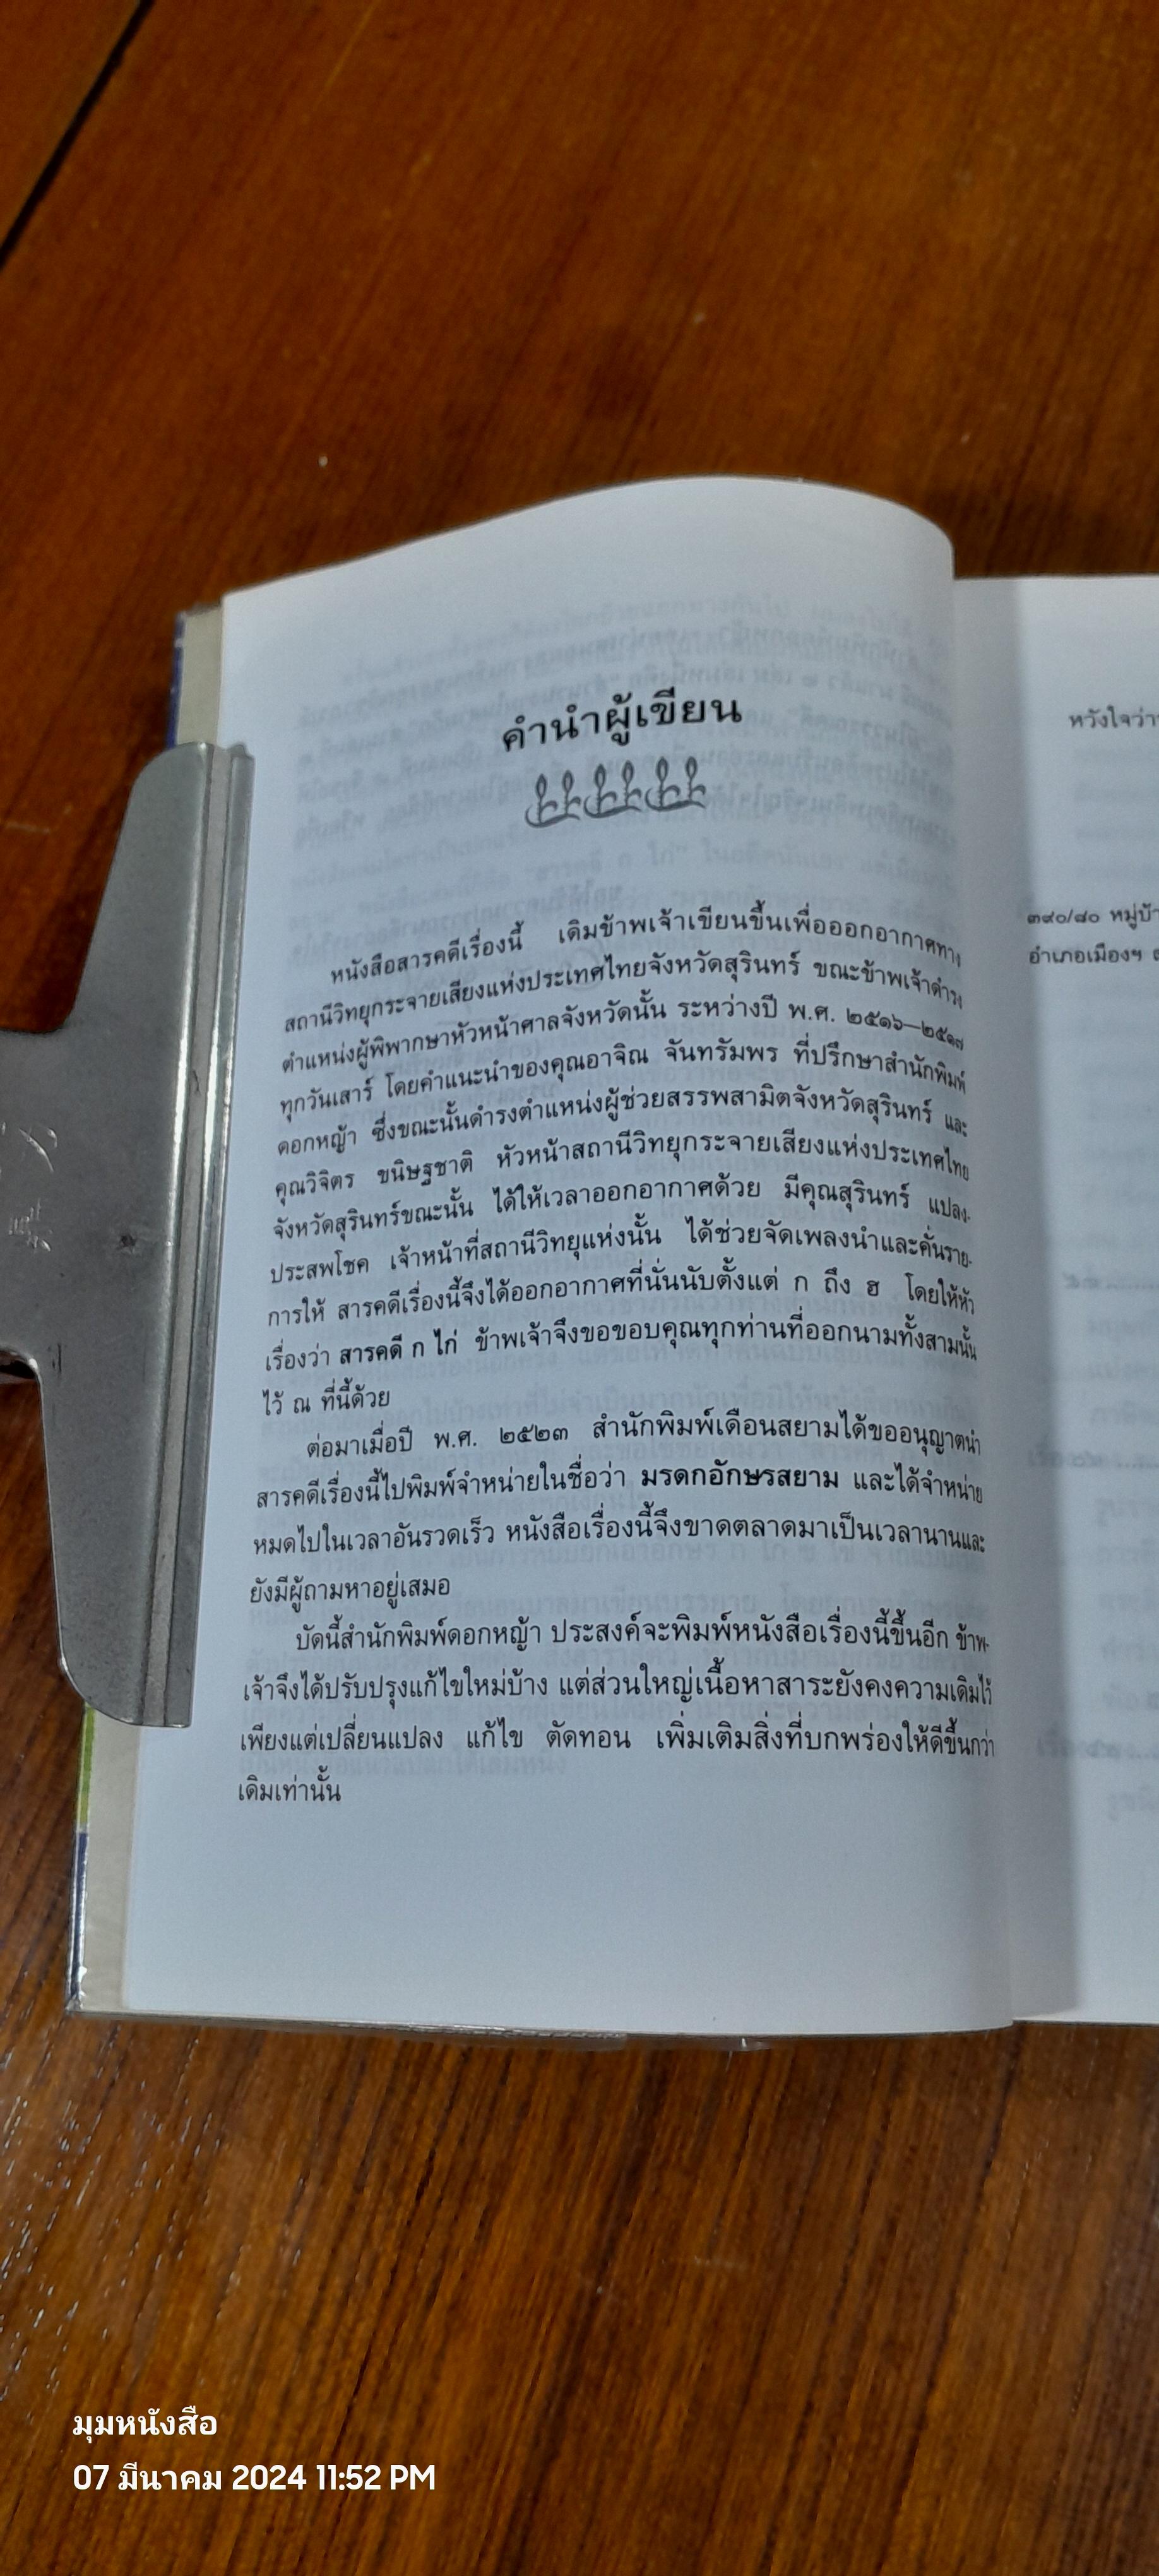 คำนำผู้เขียน
หนังสือสารคดีเรื่องนี้ เดิมข้าพเจ้าเขียนขึ้นเพื่อออกอากาศทาง
สถานีวิทยุกระจายเสียงแห่งประเทศไทยจังหวัดสุรินทร์ ขณะข้าพเจ้าดำรง
ตำแหน่งผู้พิพากษาหัวหน้าศาลจังหวัดนั้น ระหว่างปี พ.ศ. ๒๕๑๖—๒๕๑๗
ทุกวันเสาร์ โดยคำแนะนำของคุณอาจิณ จันทรัมพร ที่ปรึกษาสำนักพิมพ์
ดอกหญ้า ซึ่งขณะนั้นดำรงตำแหน่งผู้ช่วยสรรพสามิตจังหวัดสุรินทร์ และ
คุณวิจิตร ขนิษฐชาติ หัวหน้าสถานีวิทยุกระจายเสียงแห่งประเทศไทย
จังหวัดสุรินทร์ขณะนั้น ได้ให้เวลาออกอากาศด้วย มีคุณสุรินทร์ แปลง-
ประสพโชค เจ้าหน้าที่สถานีวิทยุแห่งนั้น ได้ช่วยจัดเพลงนำและคั่นราย-
การให้ สารคดีเรื่องนี้จึงได้ออกอากาศที่นั่นนับตั้งแต่ ก ถึง ฮ โดยให้หัว
เรื่องว่า สารคดี ก ไก่ ข้าพเจ้าจึงขอขอบคุณทุกท่านที่ออกนามทั้งสามนั้น
ไว้ ณ ที่นี้ด้วย
ต่อมาเมื่อปี พ.ศ. ๒๕๒๓ สำนักพิมพ์เดือนสยามได้ขออนุญาตนำ
สารคดีเรื่องนี้ไปพิมพ์จำหน่ายในชื่อว่า มรดกอักษรสยาม และได้จำหน่าย
หมดไปในเวลาอันรวดเร็ว หนังสือเรื่องนี้จึงขาดตลาดมาเป็นเวลานานและ
ยังมีผู้ถามหาอยู่เสมอ
บัดนี้สำนักพิมพ์ดอกหญ้า ประสงค์จะพิมพ์หนังสือเรื่องนี้ขึ้นอีก ข้าพ-
เจ้าจึงได้ปรับปรุงแก้ไขใหม่บ้าง แต่ส่วนใหญ่เนื้อหาสาระยังคงความเดิมไว้
เพียงแต่เปลี่ยนแปลง แก้ไข ตัดทอน เพิ่มเติมสิ่งที่บกพร่องให้ดีขึ้นกว่า
เดิมเท่านั้น
หวังใจว่า
๓๙๐/๘๐ หมู่บ้า
อำเภอเมืองฯ
มุมหนังสือ
07 มีนาคม 2024 11:52 PM